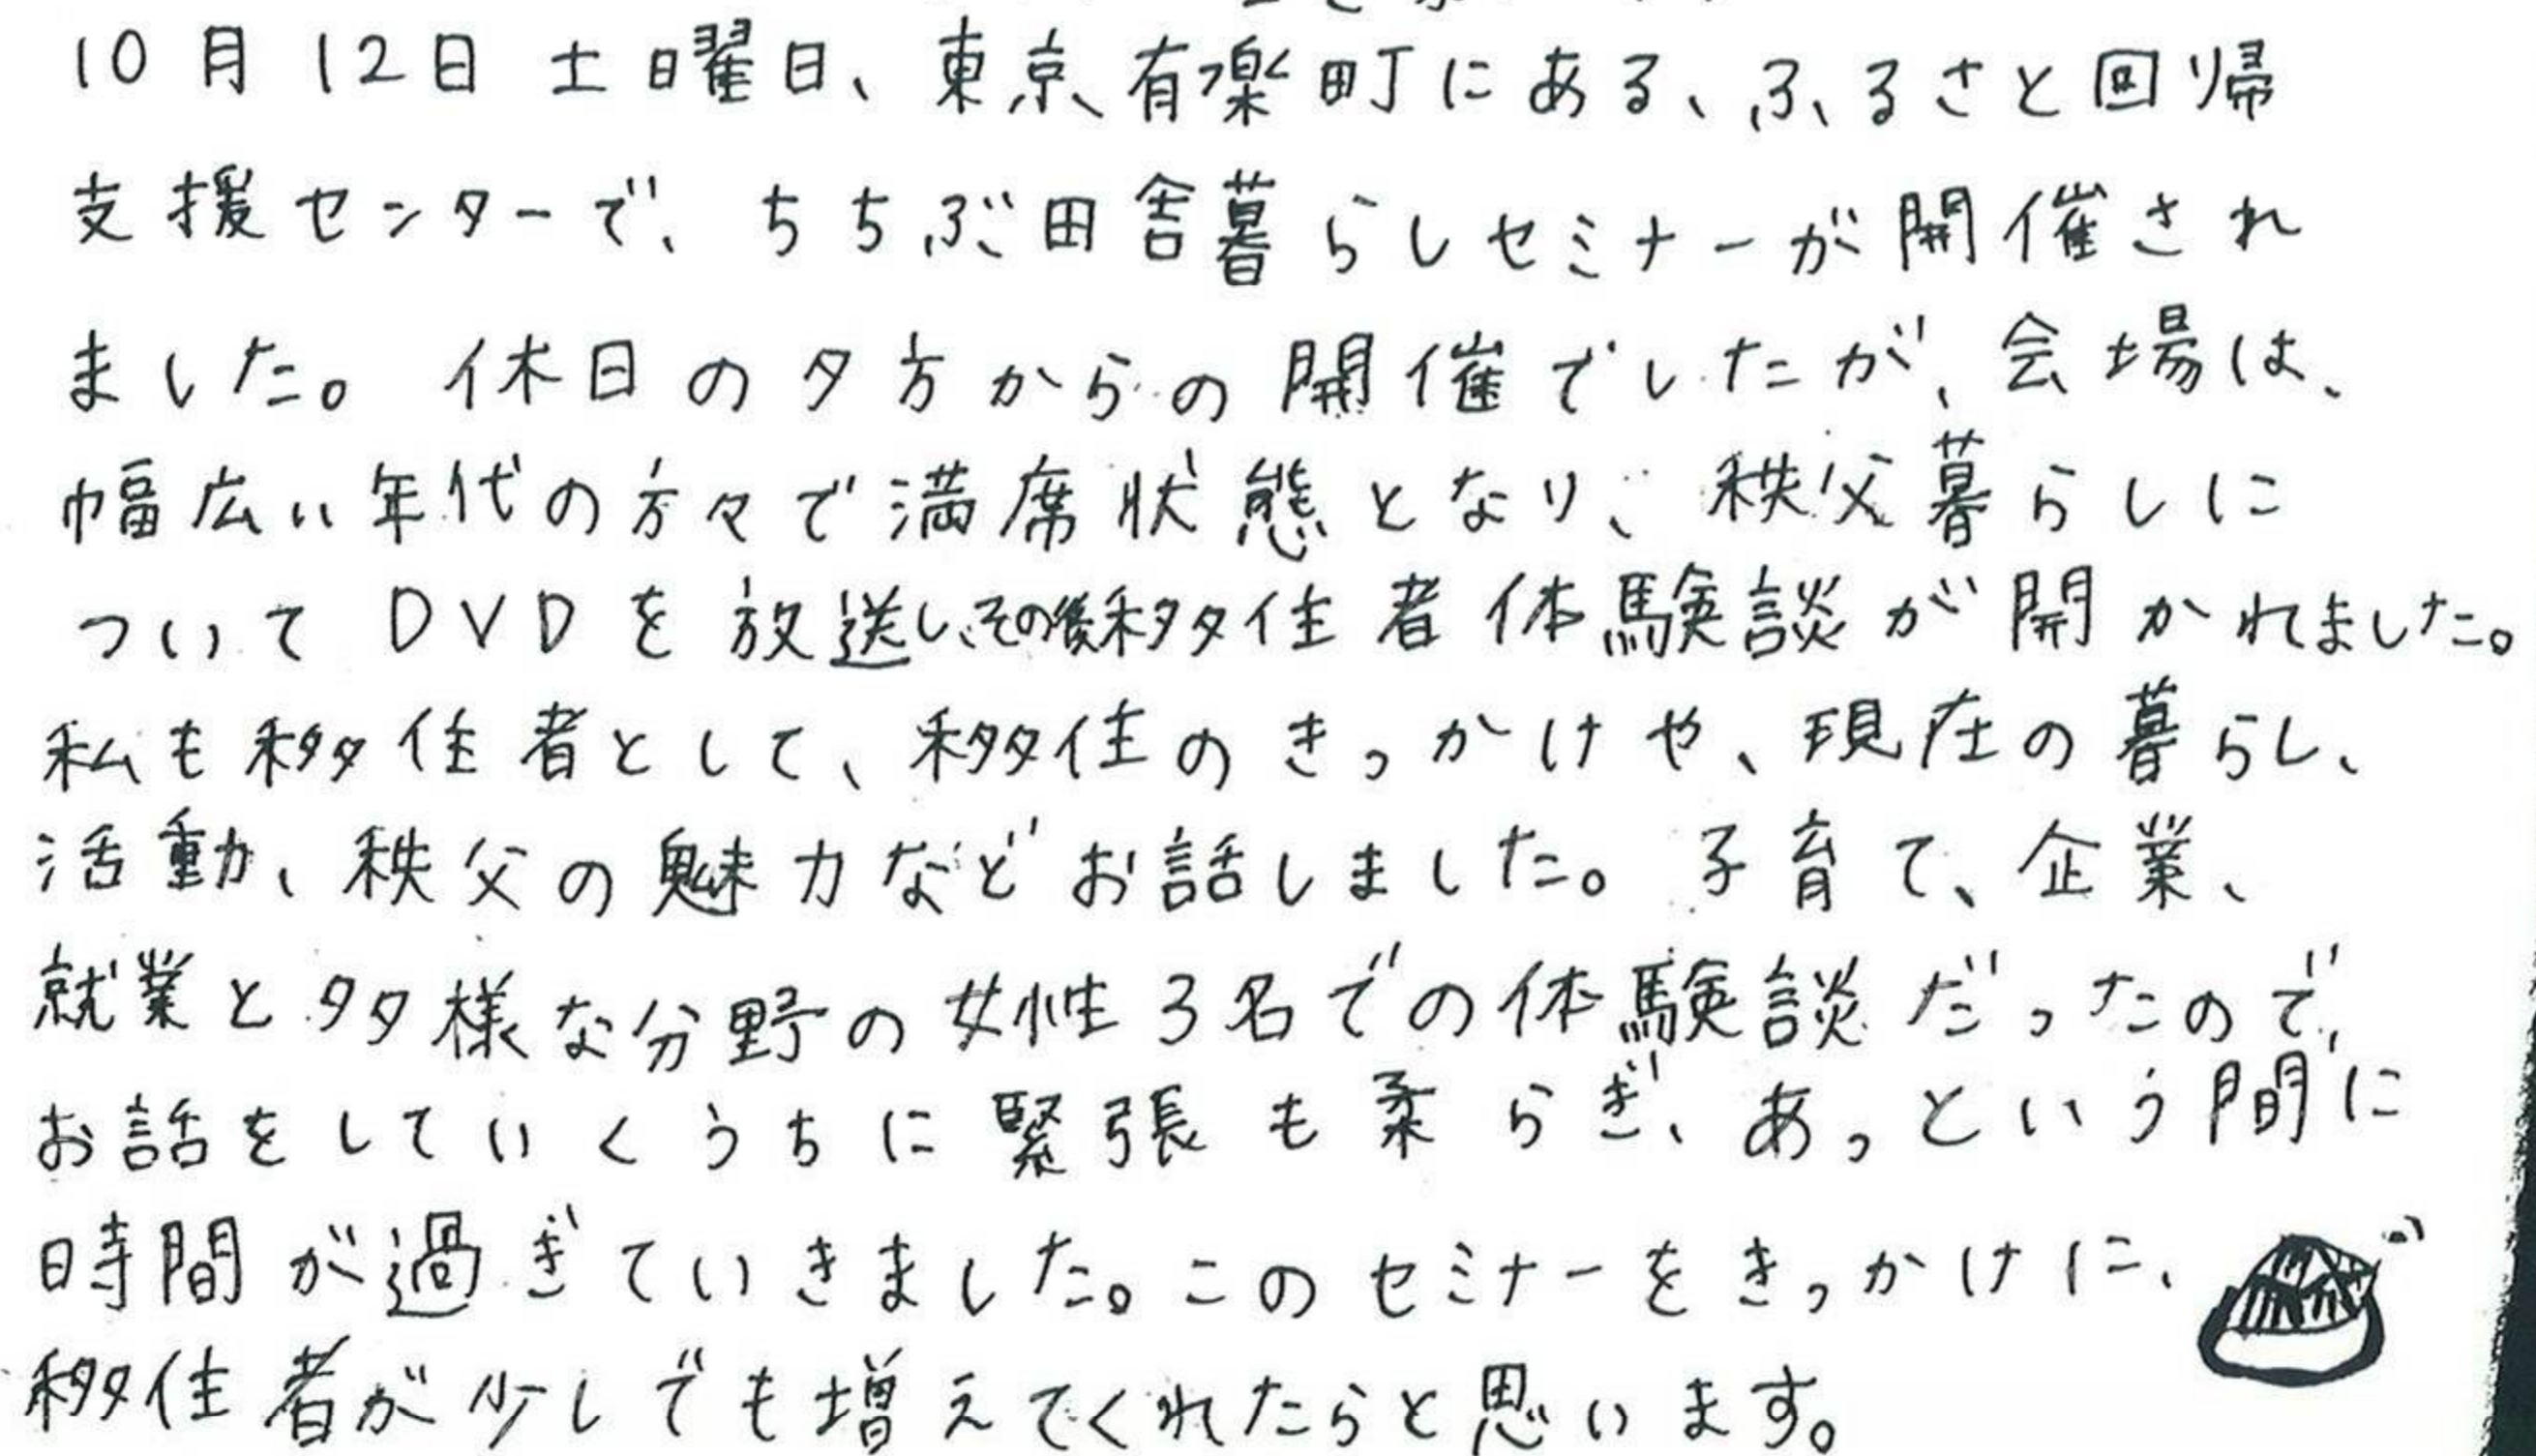 10月12日 土曜日、東京、有楽町にある、ふるさと回帰
支援センターで、ちちぶ田舎暮らしセミナーが開催され
ました。休日の夕方からの開催でしたが、会場は、
幅広い年代の方々で満席状態となり、秩父暮らしに
ついてDVDを放送し、その後移住者体験談が開かれました。
私も移住者として、移住のきっかけや、現在の暮らし、
活動、秩父の魅力などお話しました。子育て、企業、
就業と多様な分野の女性3名での体験談だったので、
お話をしていくうちに緊張も柔らぎ、あっという間に
時間が過ぎていきました。このセミナーをきっかけに、
移住者が少しでも増えてくれたらと思います。